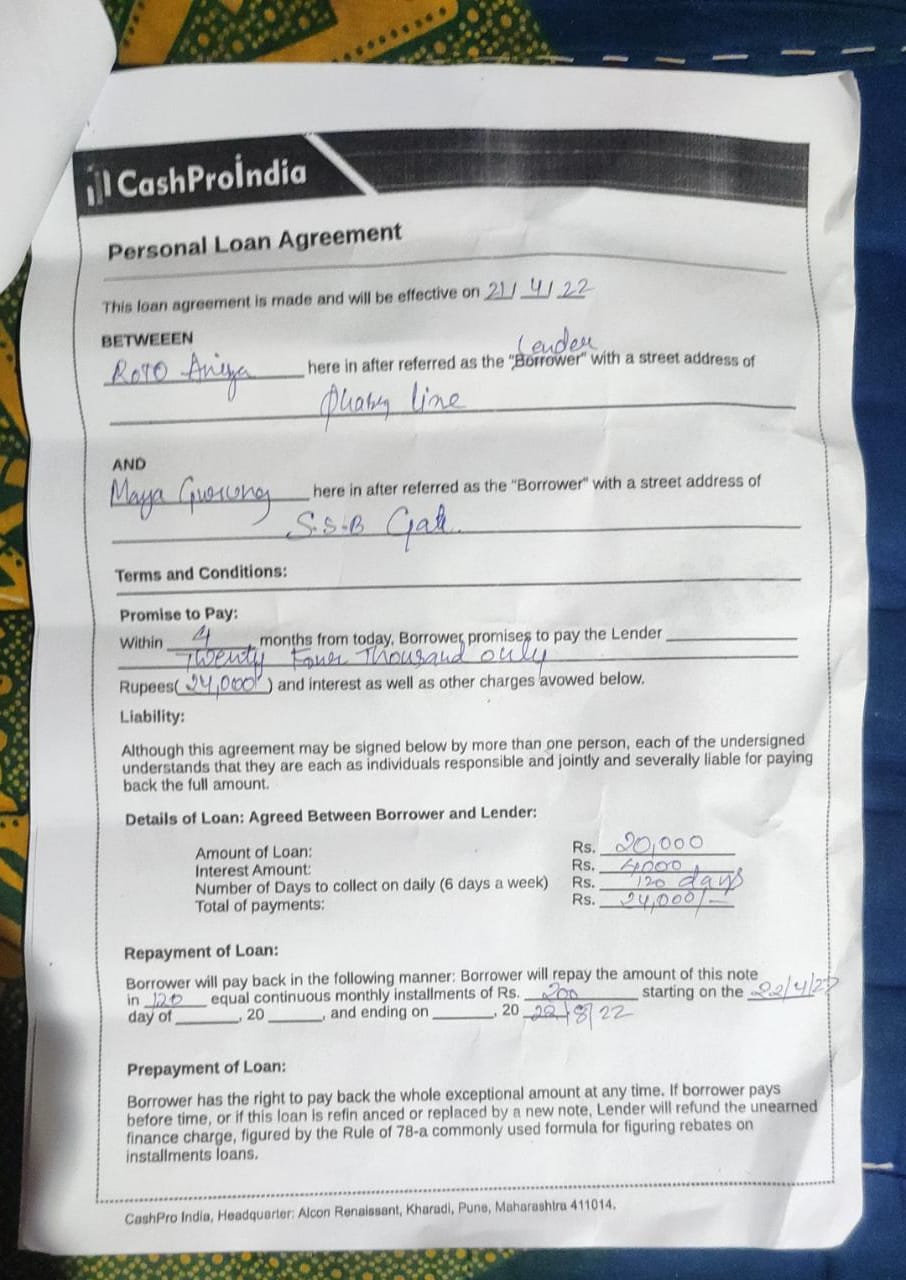 CashProIndia
Personal Loan Agreement
This loan agreement is made and will be effective on 21/ 4/ 22
BETWEEEN
Lender
Royo Aniya here in after referred as the "Borrower" with a street address of
line
AND
Maya Gurung here in after referred as the "Borrower" with a street address of
S.S.B Gate
Terms and Conditions:
Promise to Pay:
Within 4 months from today, Borrower promises to pay the Lender
Twenty Four Thousand only
Rupees( 24,000 ) and interest as well as other charges avowed below.
Liability:
Although this agreement may be signed below by more than one person, each of the undersigned
understands that they are each as individuals responsible and jointly and severally liable for paying
back the full amount.
Details of Loan: Agreed Between Borrower and Lender:
Amount of Loan: Rs. 20,000
Interest Amount: Rs. 4000
Number of Days to collect on daily (6 days a week) Rs. 120 days
Total of payments: Rs. 24,000/-
Repayment of Loan:
Borrower will pay back in the following manner: Borrower will repay the amount of this note
in 120 equal continuous monthly installments of Rs. 200 starting on the 22/4/22
day of , 20 , and ending on , 20 22/8/22
Prepayment of Loan:
Borrower has the right to pay back the whole exceptional amount at any time. If borrower pays
before time, or if this loan is refin anced or replaced by a new note, Lender will refund the unearned
finance charge, figured by the Rule of 78-a commonly used formula for figuring rebates on
installments loans.
CashPro India, Headquarter: Alcon Renaissant, Kharadi, Pune, Maharashtra 411014.